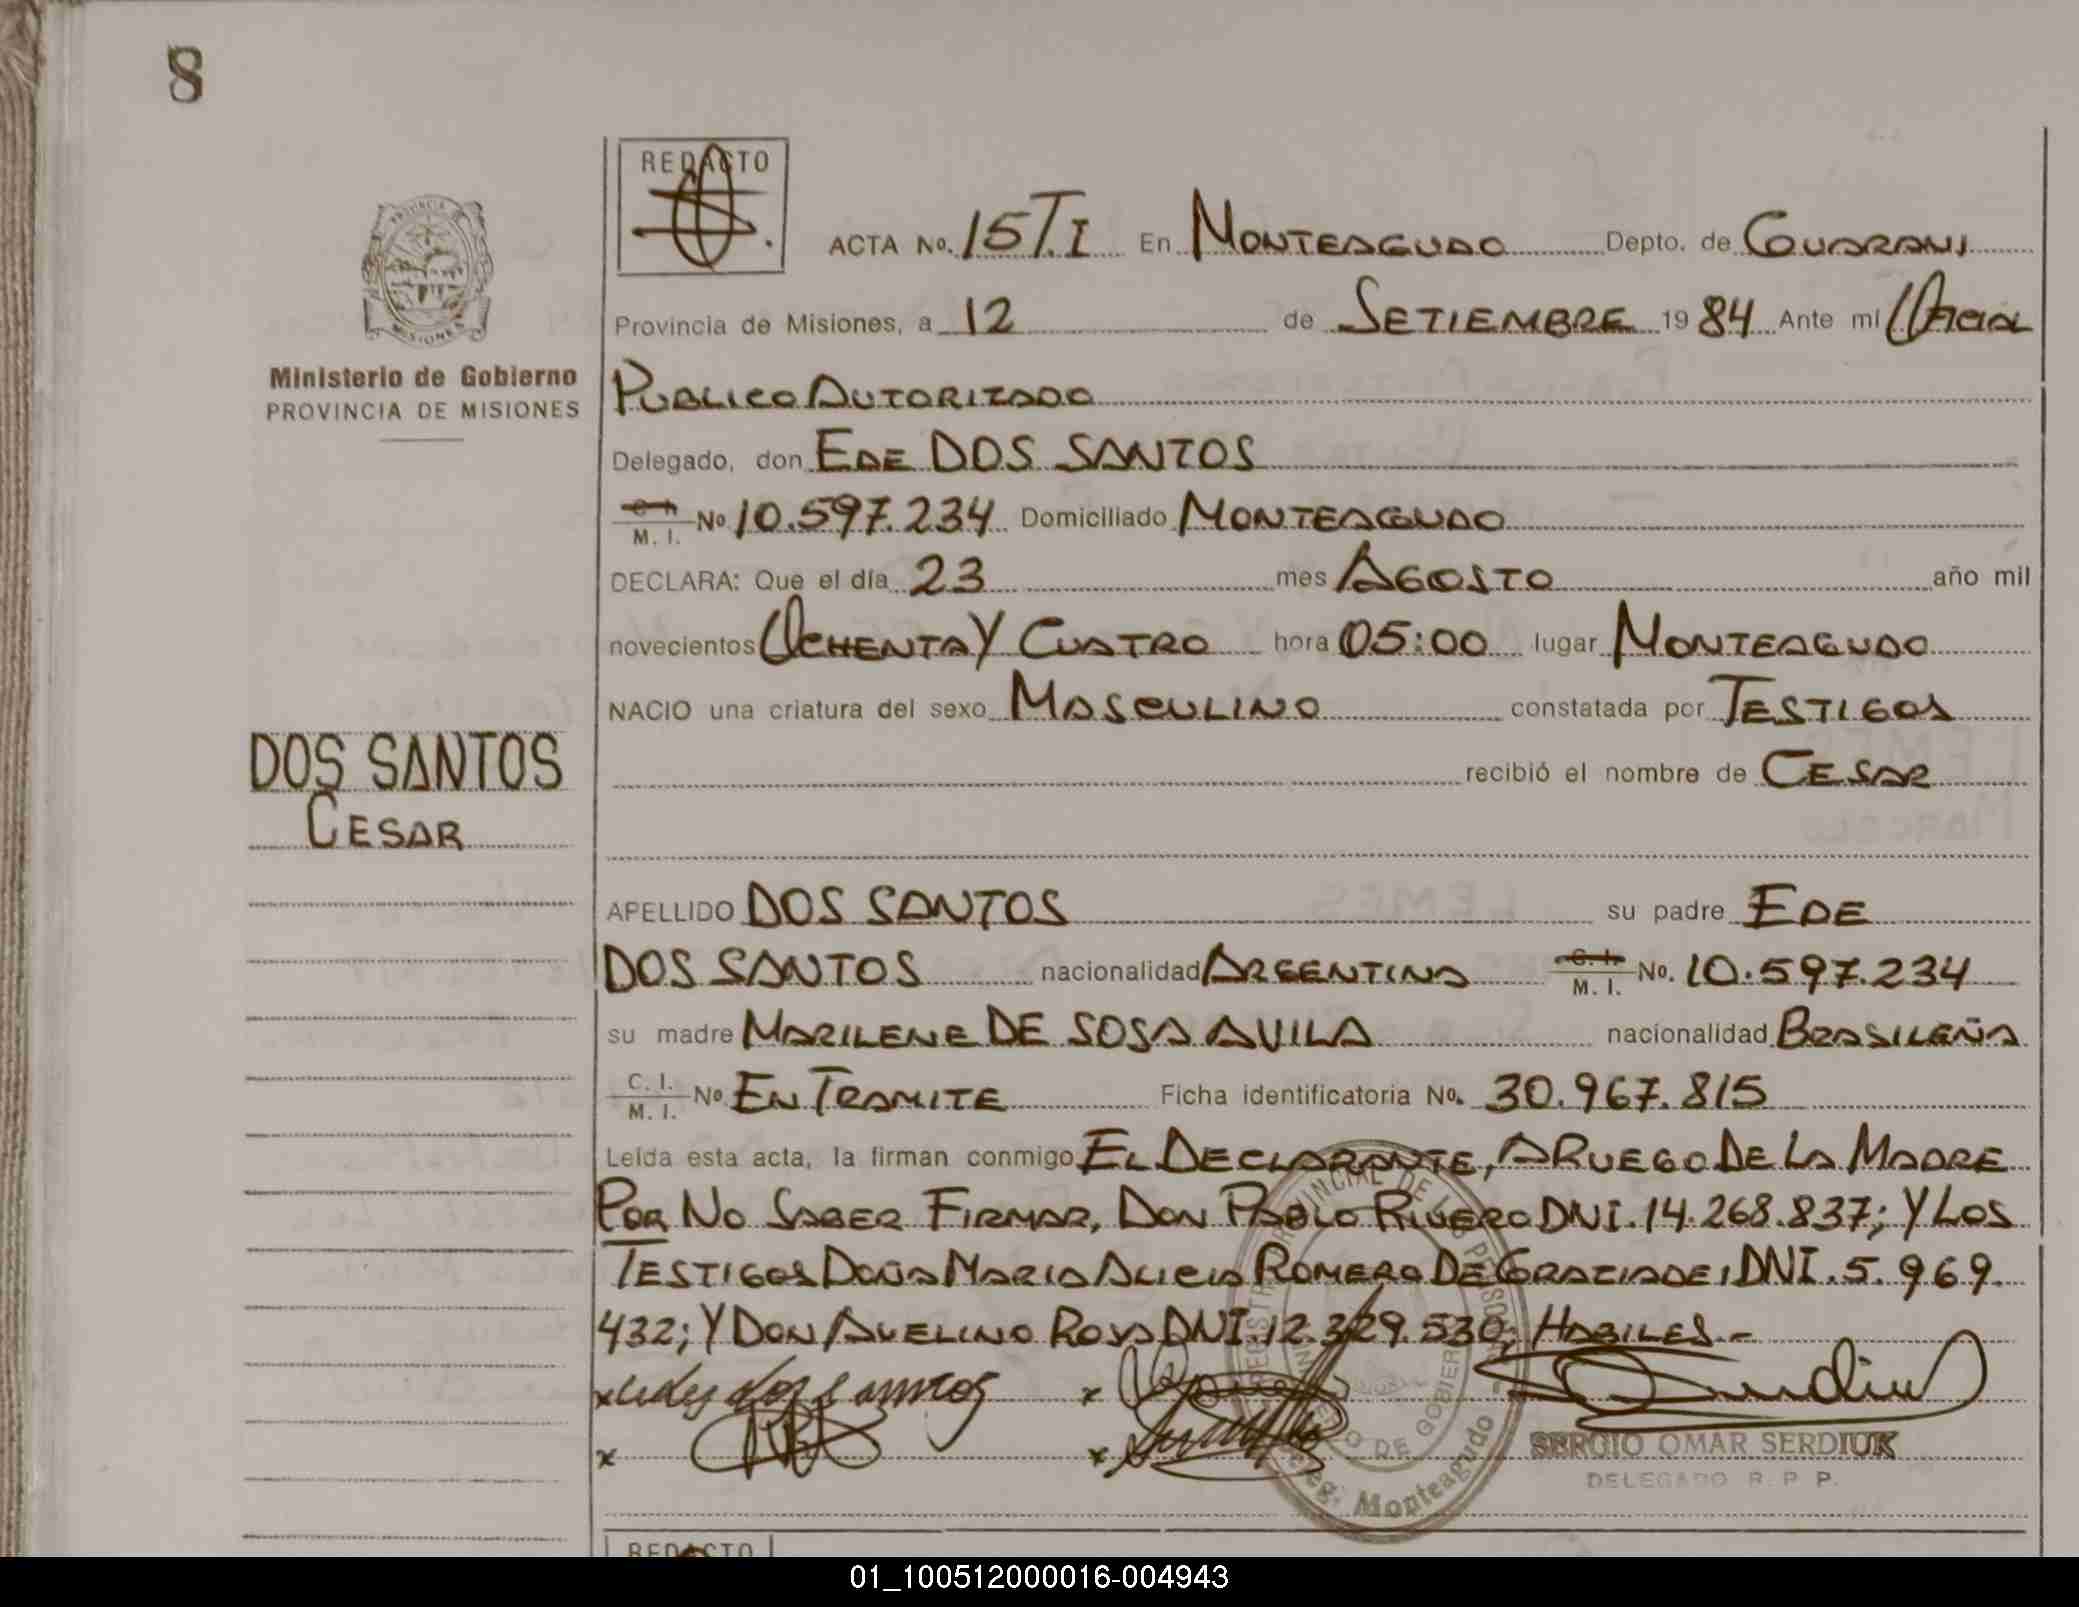 8
REDACTO
ACTA No. 15 T.I En MONTEAGUDO Depto. de GUARANI
Provincia de Misiones, a 12 de SETIEMBRE 1984 Ante mí OFICIAL
PUBLICO AUTORIZADO
PROVINCIA
MISIONES
Ministerio de Gobierno
PROVINCIA DE MISIONES
Delegado, don EDE DOS SANTOS
C. I. M. I. No 10.597.234 Domiciliado MONTEAGUDO
DECLARA: Que el día 23 mes AGOSTO año mil
novecientos OCHENTA Y CUATRO hora 05:00 lugar MONTEAGUDO
NACIO una criatura del sexo MASCULINO constatada por TESTIGOS
DOS SANTOS
CESAR
recibió el nombre de CESAR
APELLIDO DOS SANTOS su padre EDE
DOS SANTOS nacionalidad ARGENTINA C. I. M. I. No. 10.597.234
su madre MARILENE DE SOSA AVILA nacionalidad BRASILEÑA
C. I. M. I. No EN TRAMITE Ficha identificatoria No. 30.967.815
Leída esta acta, la firman conmigo EL DECLARANTE, A RUEGO DE LA MADRE
POR NO SABER FIRMAR, DON PABLO RIVERO DNI. 14.268.837; Y LOS
TESTIGOS DOÑA MARIA ALICIA ROMERO DE GRACIADEI DNI. 5.969.
432; Y DON AVELINO ROSA DNI. 12.329.530; HABILES.-
x dos santos x
x x
SERGIO OMAR SERDIUK
DELEGADO R. P. P.
REGISTRO PROVINCIAL DE LAS PERSONAS
MINISTERIO DE GOBIERNO
Deleg. Monteagudo
REDACTO
01_100512000016-004943